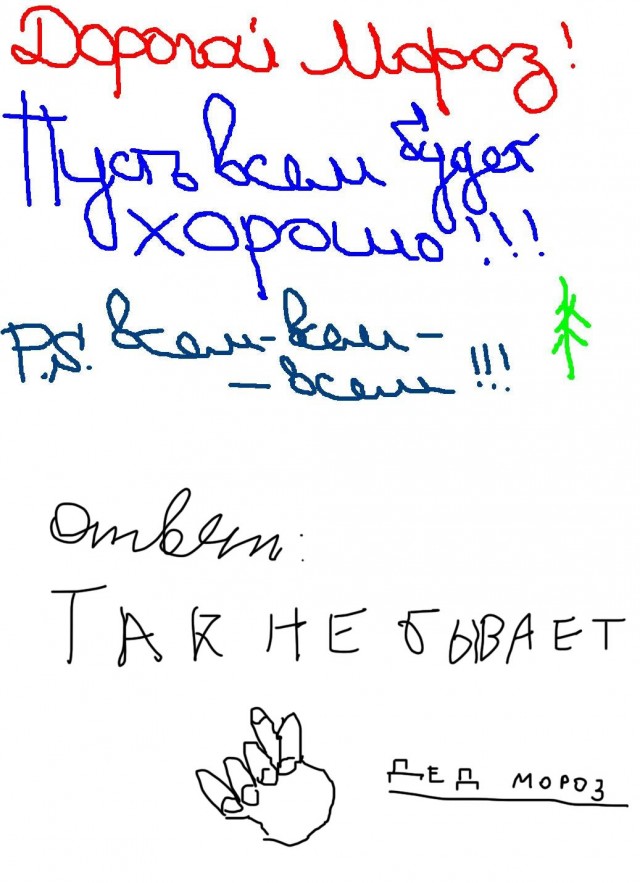 Дорогой Мороз!
Пусть всем будет
хорошо!!!
P.S. всем-всем-
-всем!!!
Ответ:
ТАК НЕ БЫВАЕТ
ДЕД МОРОЗ